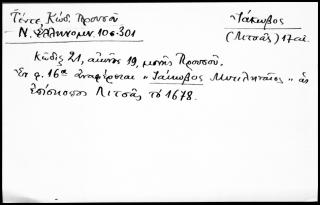 Γέντε, Κώδ. Προυσοῦ
Ν. Ἑλληνομν. 10 σ. 301
Ἰάκωβος
(Λιτσᾶς) 17 αἰ.
Κῶδιξ 21, αἰῶνος 19, μονῆς Προυσοῦ.
Ἐν φ. 16α ἀναφέρεται "Ἰάκωβος Μυτιληναῖος" ὡς
ἐπίσκοπος Λιτσᾶς τὸ 1678.